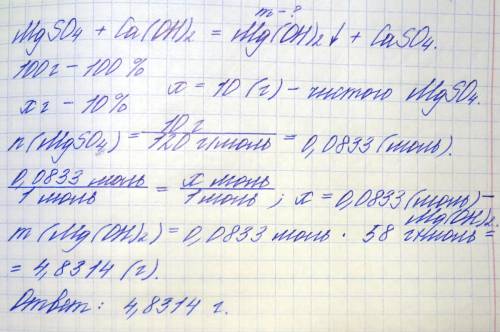 m - ?
MgSO4 + Ca(OH)2 = Mg(OH)2↓ + CaSO4.
100г - 100 %
x г - 10%
x = 10 (г) - чистого MgSO4.
n(MgSO4) = 10 г / 120 г/моль = 0,0833 (моль).
0,0833 моль / 1 моль = x моль / 1 моль ; x = 0,0833 (моль) - Mg(OH)2.
m (Mg(OH)2) = 0,0833 моль · 58 г/моль =
= 4,8314 (г).
Ответ: 4,8314 г.